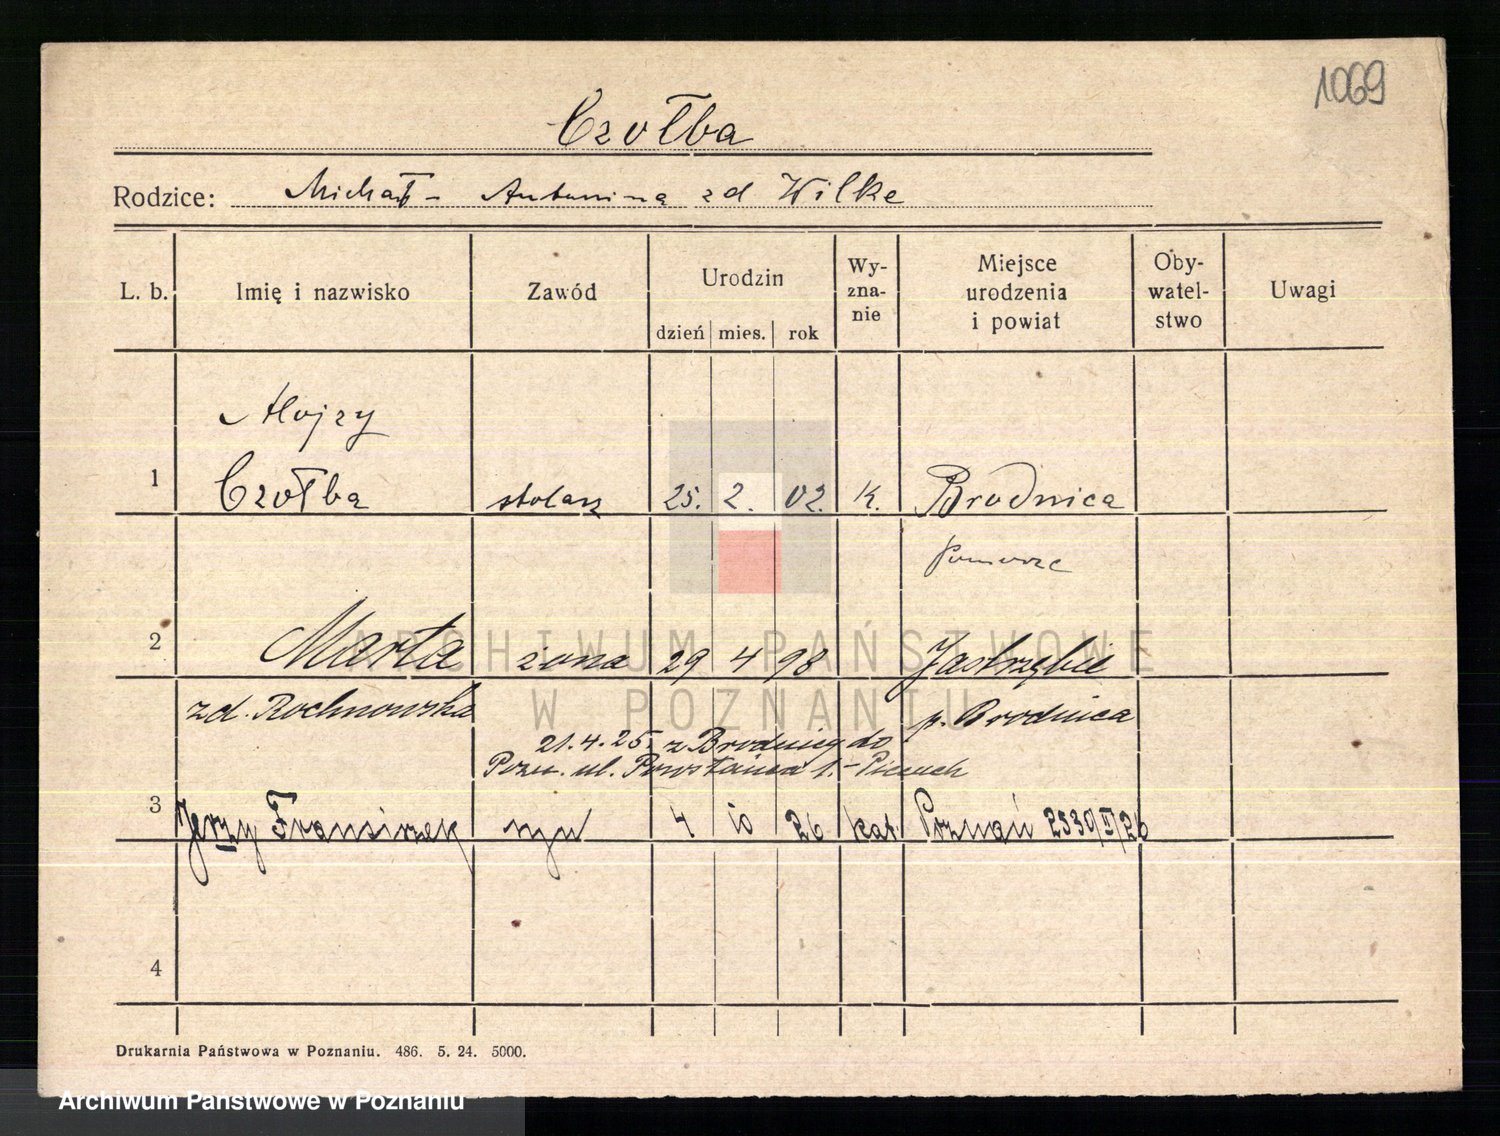 1069
Czołba
Rodzice: Michał - Antonina zd Wilke
L. b. Imię i nazwisko Zawód Urodzin dzień mies. rok Wy-zna-nie Miejsce urodzenia i powiat Oby-watel-stwo Uwagi
Alojzy
1 Czołba stolarz 25. 2. 02. k. Brodnica
Pomorze
2 Marta żona 29 4 98 Jastrzębie
zd. Rochnowska p. Brodnica
21.4.25. z Brodnicy do
Pozn. ul. Powstańca 1.-
3 Jerzy Franciszek syn 4 10 26 kat Poznań 2530/II/26
4
Drukarnia Państwowa w Poznaniu. 486. 5. 24. 5000.
ARCHIWUM PAŃSTWOWE
W POZNANIU
Archiwum Państwowe w Poznaniu